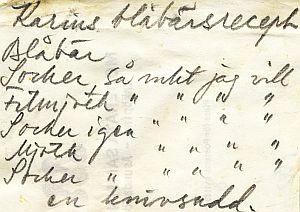 Karins blåbärsrecept
Blåbär
Socker så mkt jag vill
Filmjölk " " " "
Socker igen " " "
Mjölk " " " "
Socker " " " "
en knivsudd.